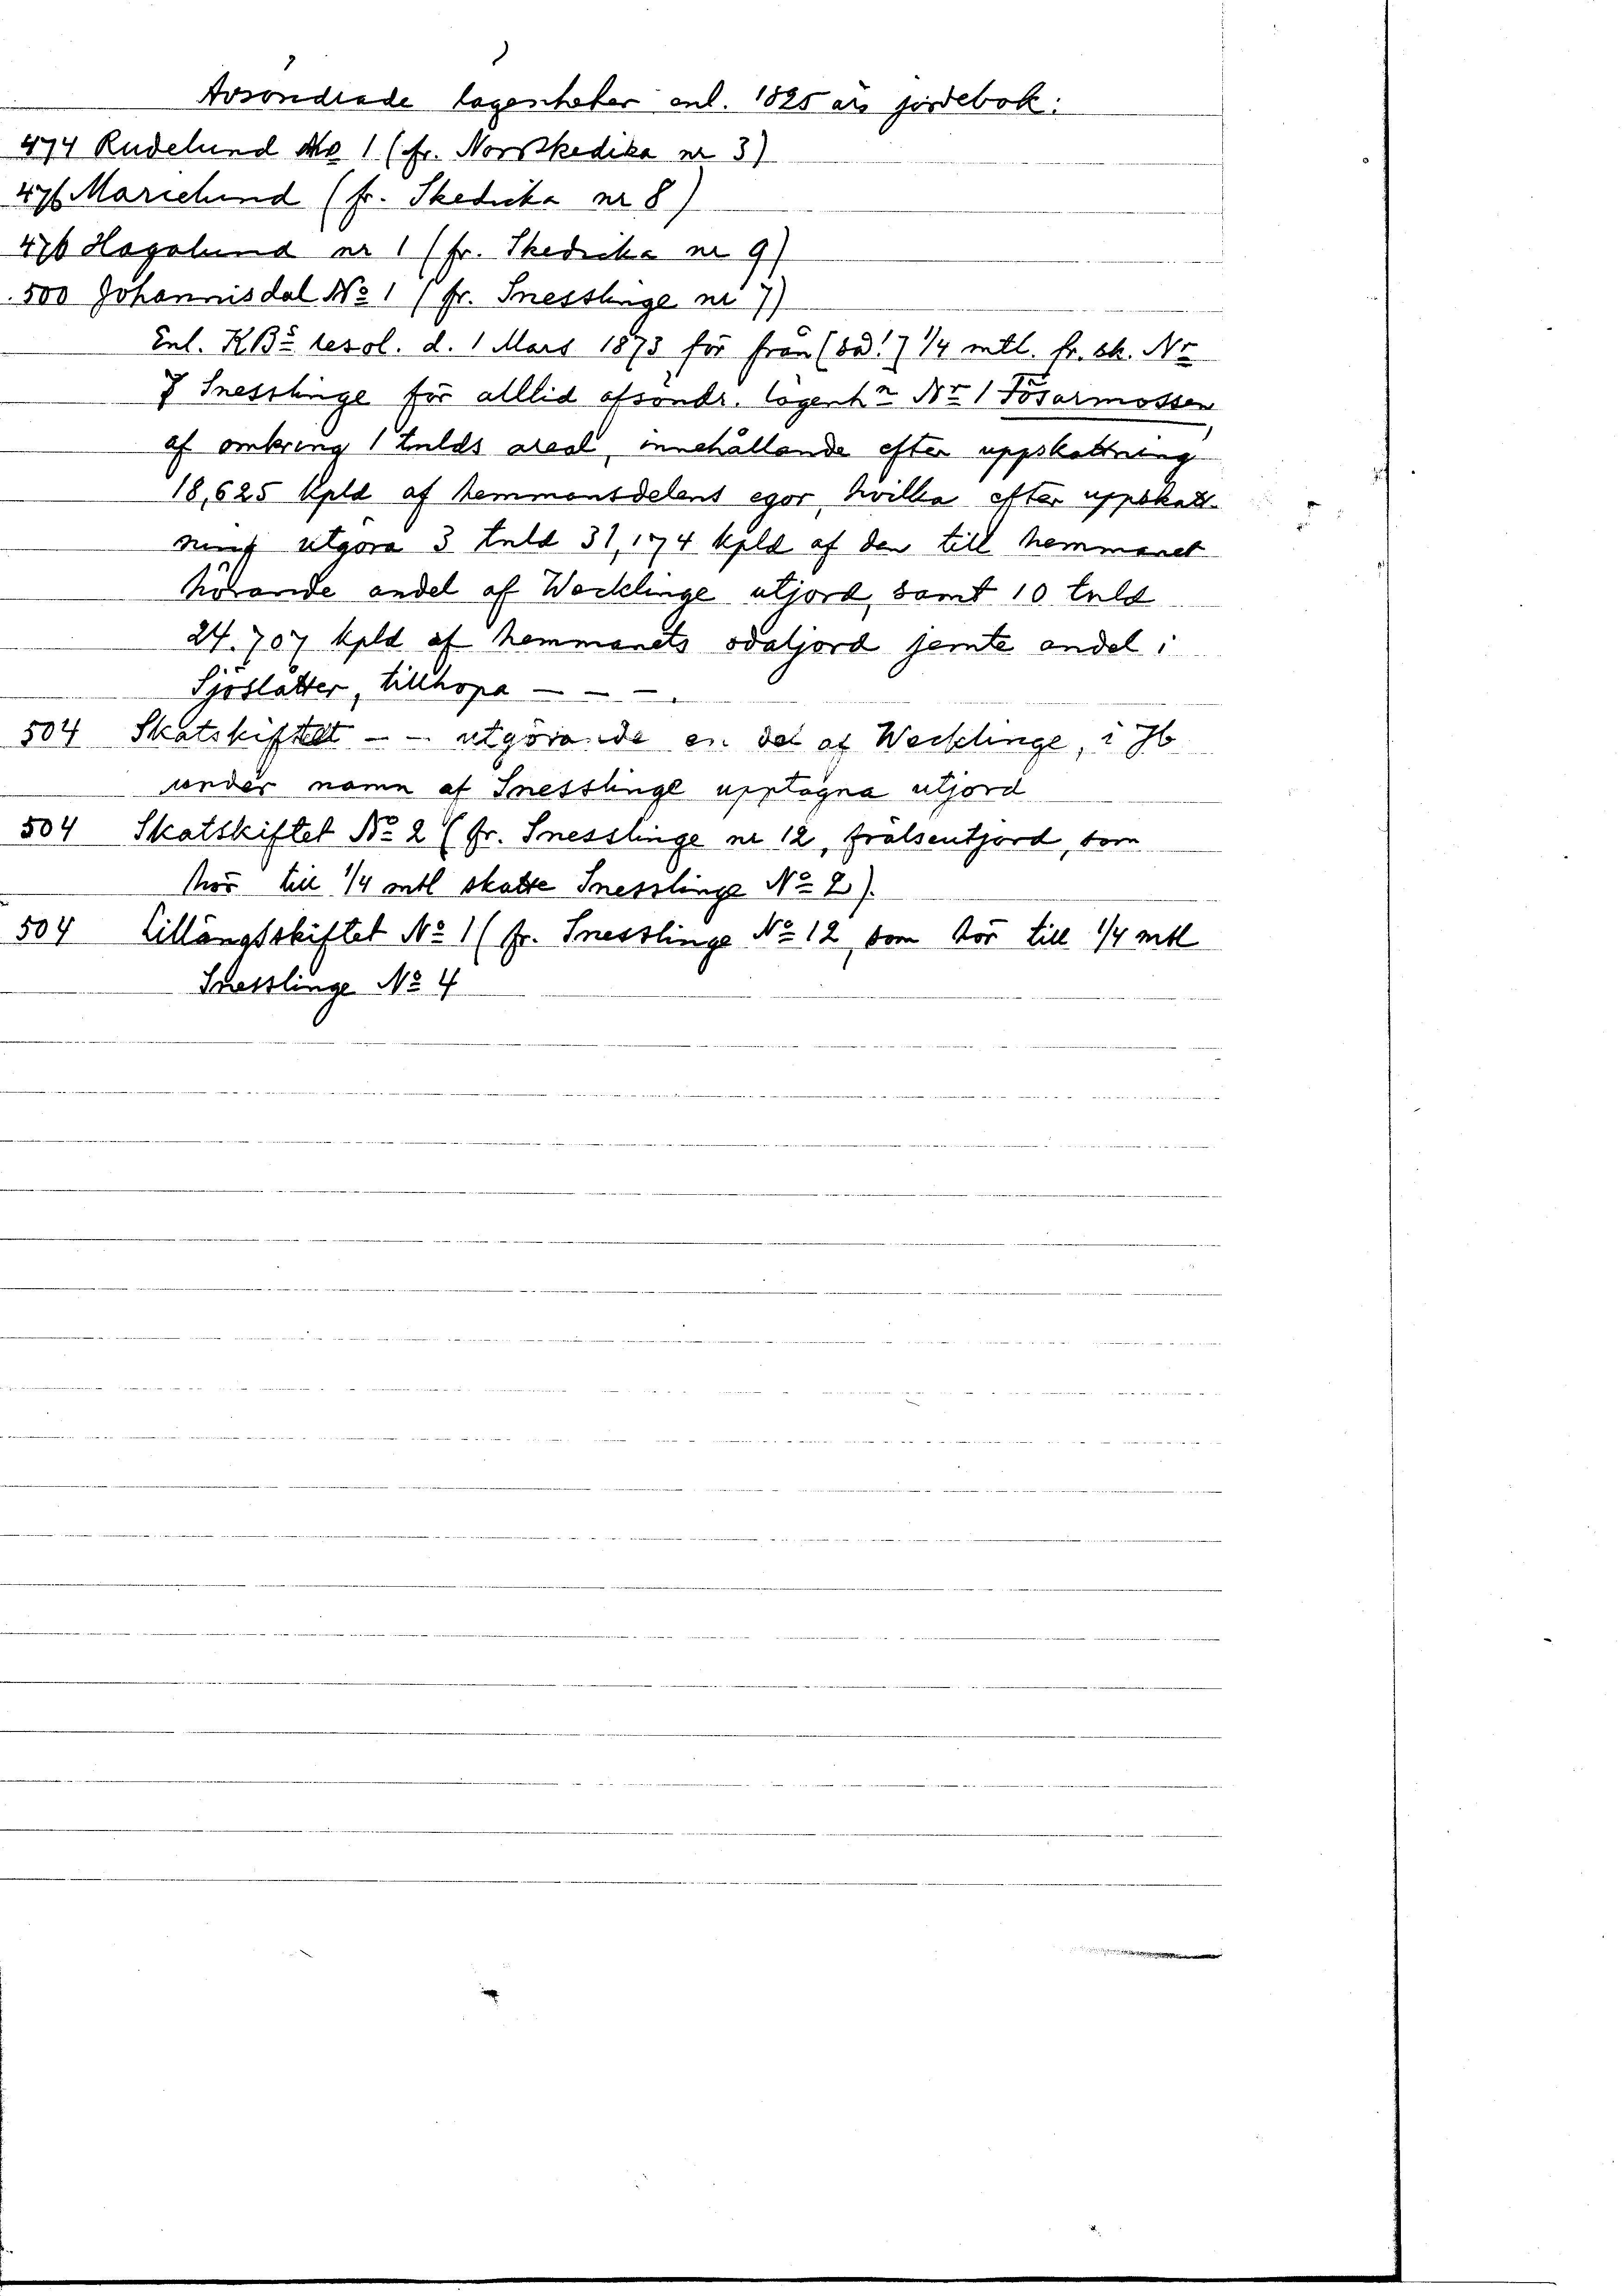 Avsöndrade lägenheter enl. 1825 års jordebok:
474 Rudelund No 1 (fr. Norrskedika nr 3)
476 Marielund (fr. Skedicka nr 8)
476 Hagalund nr 1 (fr. Skedicka nr 9)
500 Johannisdal No 1 (fr. Snesslinge nr 7)
Enl. KBs resol. d. 1 Mars 1873 för från (så!) 1/4 mtl. fr. sk. Nr
7 Snesslinge för alltid afsöndr. lägenhn Nr 1 Tösarmossen
af omkring 1 tnlds areal, innehållande efter uppskattning
18,625 kpld af hemmansdelens egor, hvilka efter uppskatt-
ning utgöra 3 tnld 31,174 kpld af den till hemmanet
hörande andel af Wecklinge utjord, samt 10 tnld
24.707 kpld af hemmanets odaljord jemte andel i
Sjöslåtter, tillhopa - - -
504 Skatskiftet - - utgörande en del af Wecklinge, i Jb
under namn af Snesslinge upptagna utjord
504 Skatskiftet No 2 (fr. Snesslinge nr 12, frälseutjord, som
hör till 1/4 mtl skatte Snesslinge No 2).
504 Lillängsskiftet No 1 (fr. Snesslinge No 12, som hör till 1/4 mtl
Snesslinge No 4